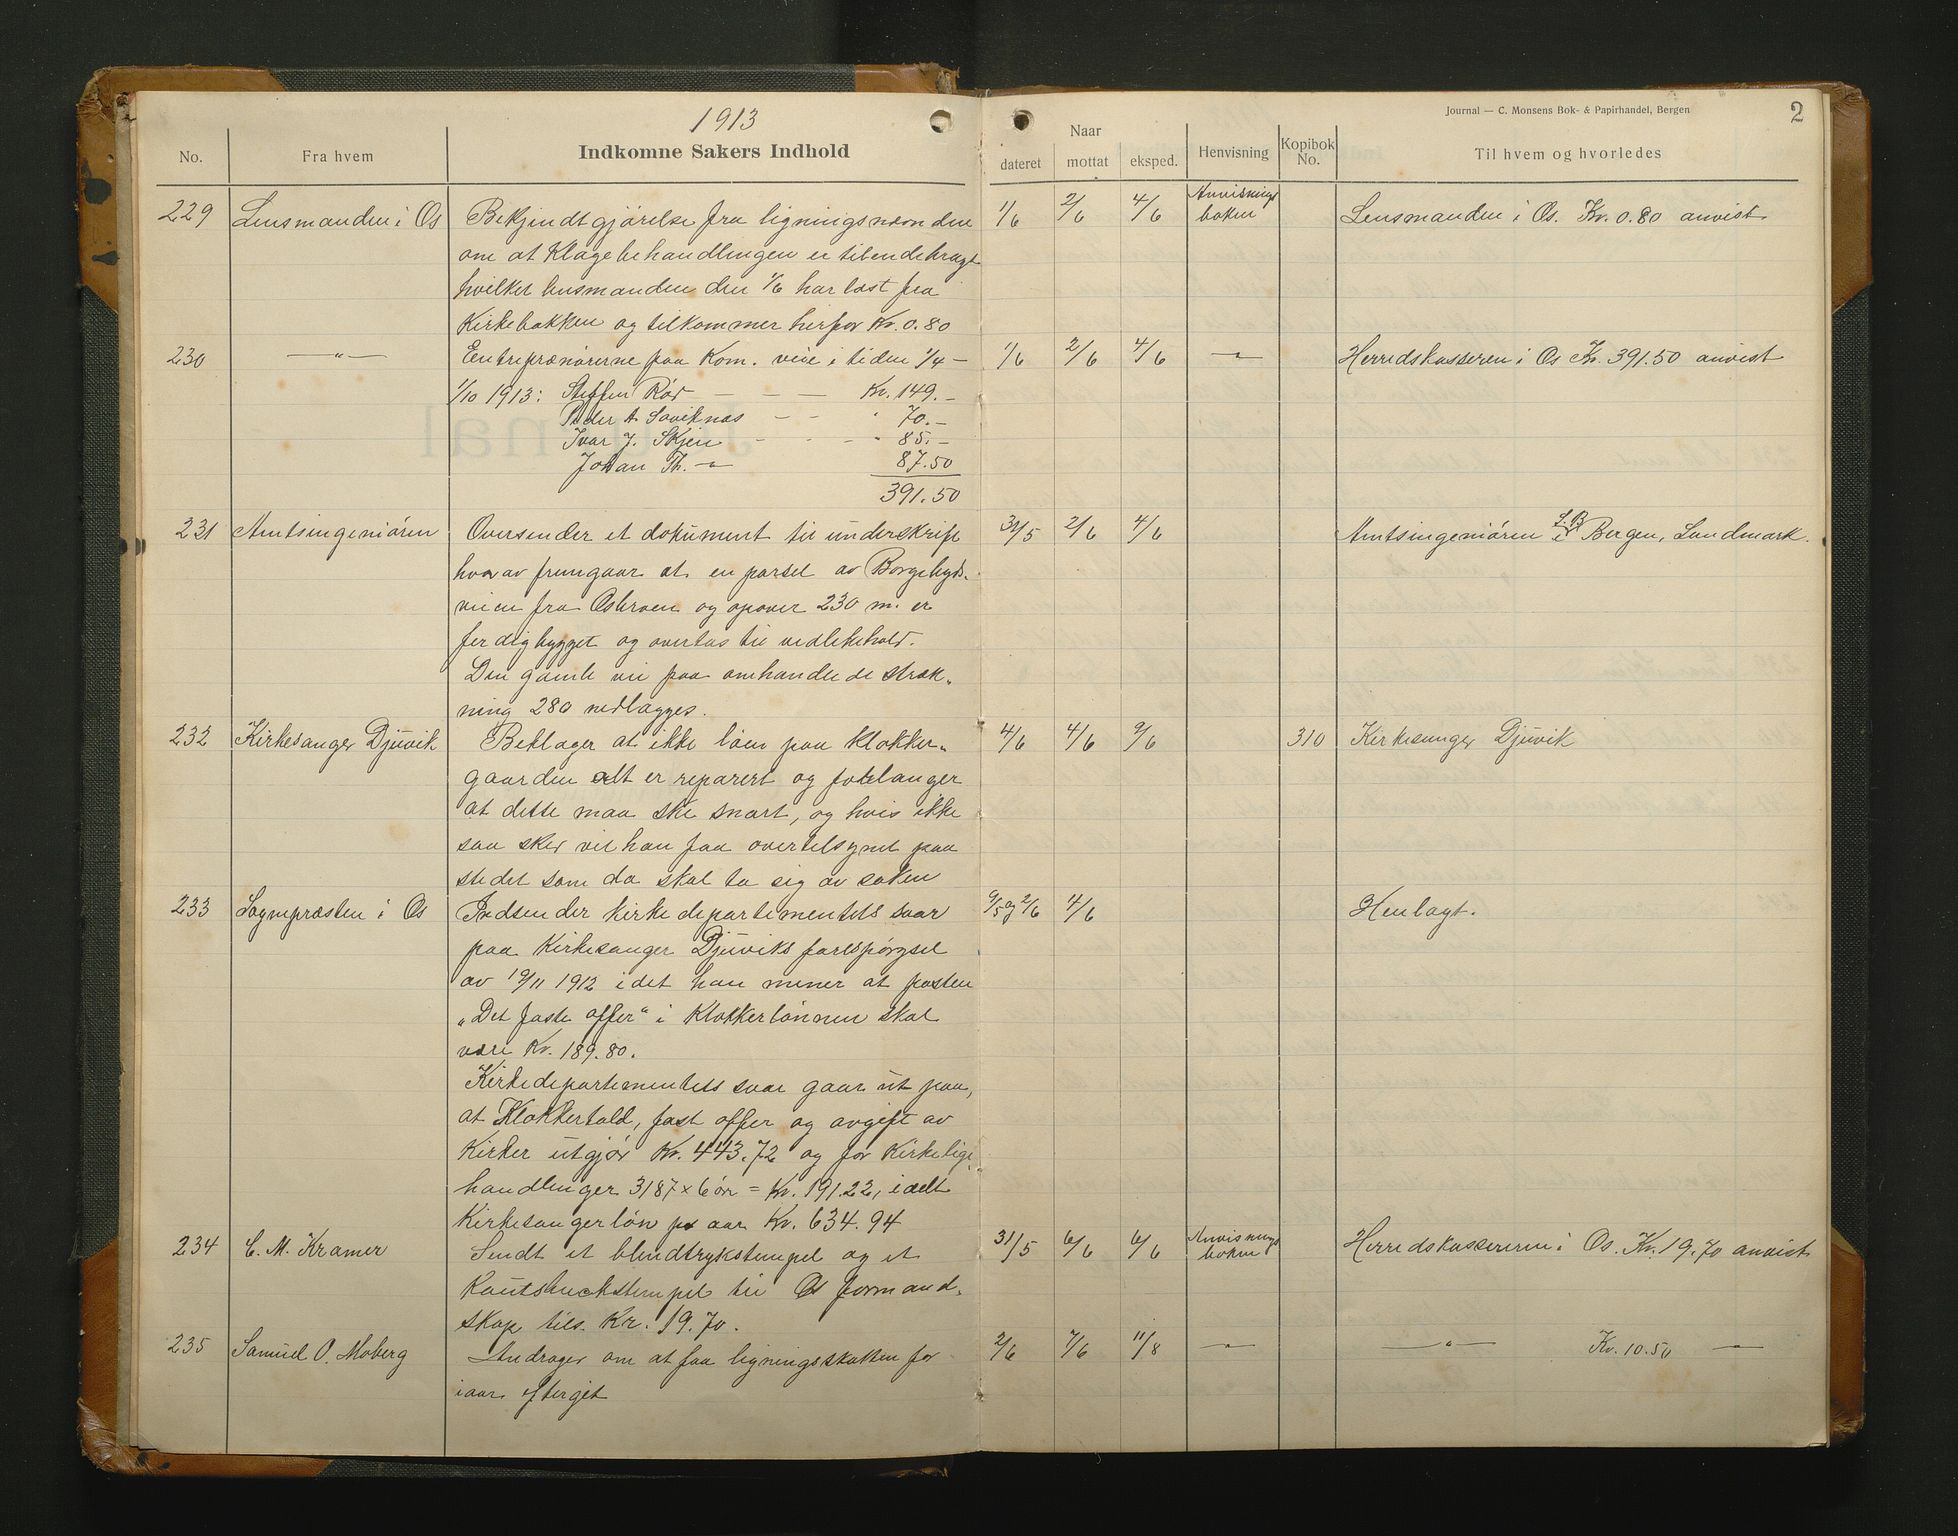 1913
Journal — C. Monsens Bok- & Papirhandel, Bergen
2
No.
Fra hvem
Indkomne Sakers Indhold
Naar
dateret
mottat
eksped.
Henvisning
Kopibok No.
Til hvem og hvorledes
229 Lensmanden i Os Bekjendtgjørelse fra ligningsnævndene 1/6 2/6 4/6 Anvisnings boken Lensmanden i Os. Kr. 0.80 anvist
om at Klagebehandlingen er tilendebragt
hvilket lensmanden den 1/6 har læst fra
Kirkebakken og tilkommer herfor Kr. 0.80
230 —"— Entreprenørerne paa Kom. veie i tiden 1/4 — 1/6 2/6 4/6 —"— Herredskasseren i Os Kr. 391.50 anvist
1/10 1913: Steffen Rød — — — Kr. 149.—
Peder A. Søviknæs — — " 70.—
Ivar J. Skjen - - - " 85.—
Johan Th. —"— 87.50
391.50
231 Amtsingeniøren Oversender et dokument til underskrift 31/5 2/6 4/6 Amtsingeniøren i S.B. Bergen, Landmark.
hvorav fremgaar at en parsel av Borgebygds-
veien fra Osbroen og opover 230 m. er
ferdigbygget og overtas til vedlikehold.
Den gamle vei paa omhandlede stræk-
ning 280 nedlægges.
232 Kirkesanger Djuvik Beklager at ikke låen paa Klokker- 4/6 4/6 9/6 310 Kirkesanger Djuvik
gaarden alt er reparert og forlanger
at dette maa ske snart, og hvis ikke
saa sker vil han faa overtilsynet paa
stedet som da skal ta sig av saken
233 Sognepræsten i Os Indsender kirkedepartementets svar 9/5 og 2/6 4/6 Henlagt.
paa Kirkesanger Djuviks forespørgsel
av 19/11 1912 idet han mener at posten
„Det faste offer" i Klokkerlønnen skal
være Kr. 189.80.
Kirkedepartementets svar gaar ut paa,
at Klokkertold, fast offer og avgift av
Kirker utgjør Kr. 443.72 og for Kirkelige
handlinger 3187 x 6 øre = Kr. 191.22, i alt
Kirkesangerløn pr aar Kr. 634.94
234 C. M. Kramer Sendt et blindtrykstempel og et 31/5 6/6 6/6 Anvisnings boken Herredskassereren i Os. Kr. 19.70 anvist
Kautschuckstempel til Os formand-
skap tils. Kr. 19.70.
235 Samuel O. Moberg Andrager om at faa ligningsskatten for 2/6 7/6 11/8 —"— —"— Kr. 10.50 —
iaar eftergit